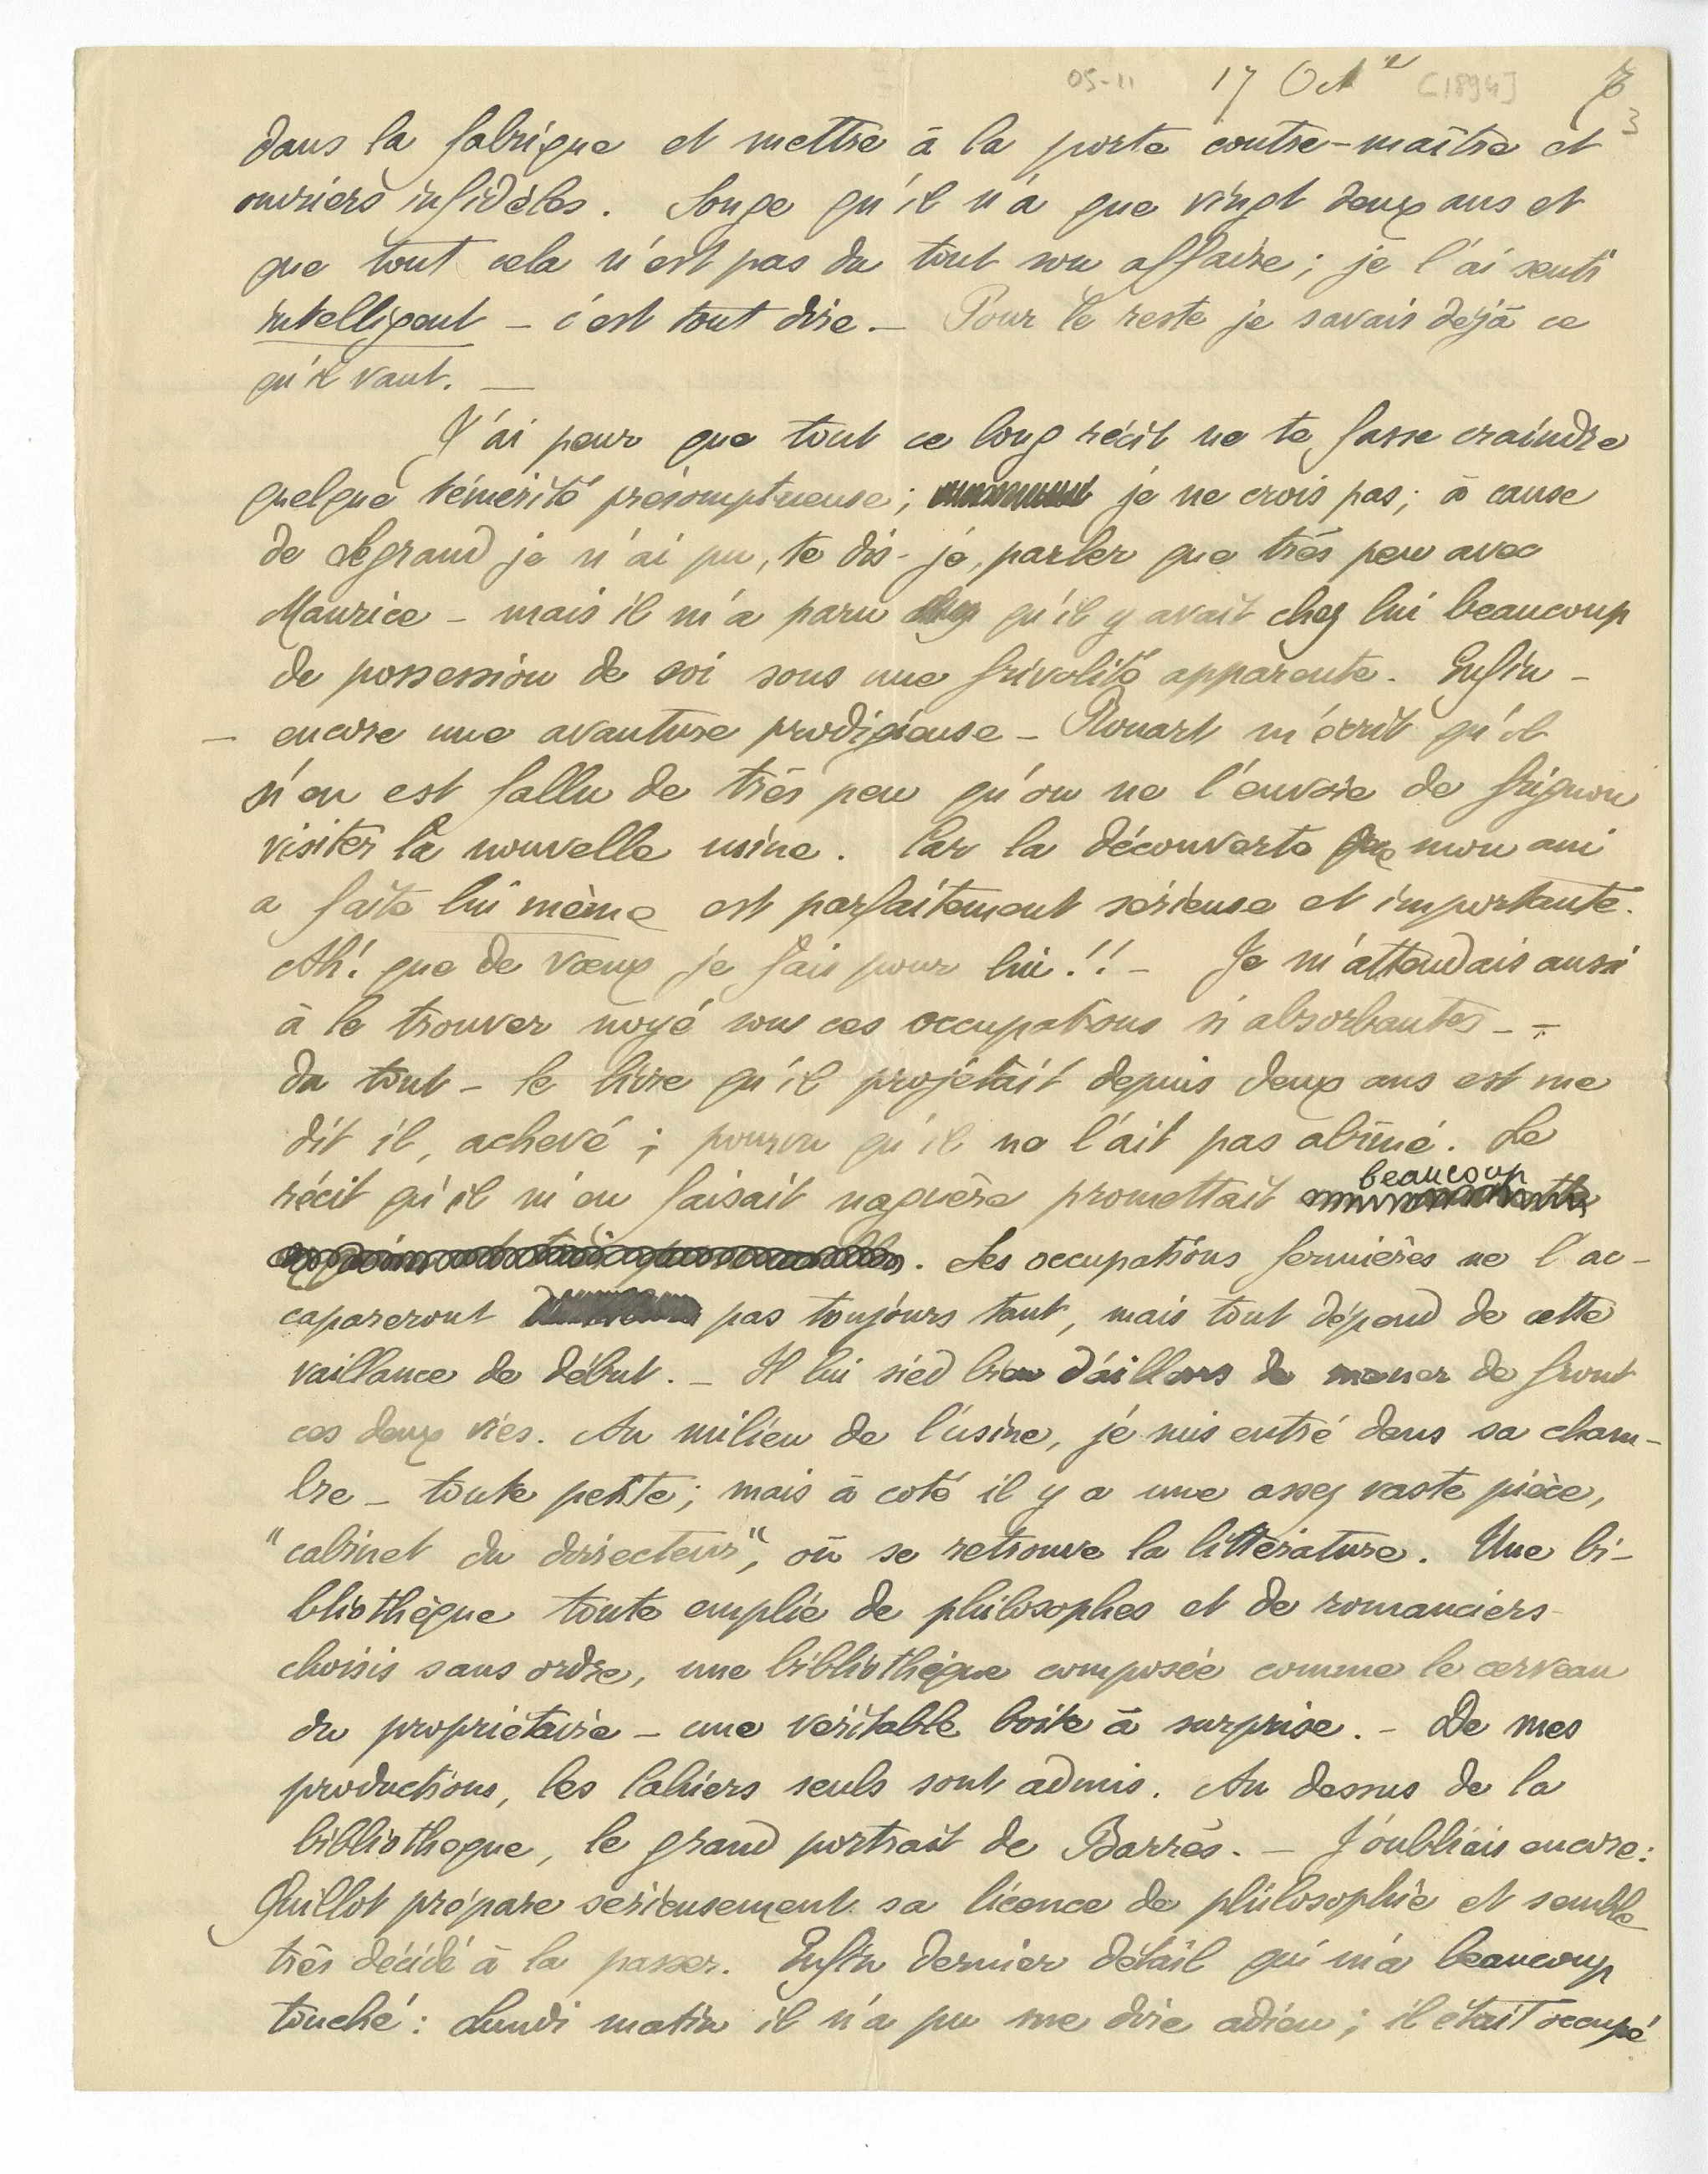 05-11 17 Oct [1894] 7
3
dans la fabrique et mettre à la porte contre-maître et
ouvriers infidèles. Songe qu'il n'a que vingt deux ans et
que tout cela n'est pas du tout son affaire ; je l'ai senti
intelligent – c'est tout dire. – Pour le reste je savais déjà ce
qu'il vaut. —
J'ai peur que tout ce long récit ne te fasse craindre
quelque témérité présomptueuse ; je ne crois pas ; à cause
de Legrand je n'ai pu, te dis-je, parler que très peu avec
Maurice – mais il m'a paru qu'il y avait chez lui beaucoup
de possession de soi sous une frivolité apparente. Enfin –
– encore une avanture prodigieuse – Rouart m'écrit qu'il
s'en est fallu de très peu qu'on ne l'envoie de Grignon
visiter la nouvelle usine. Car la découverte que mon ami
a faite lui même est parfaitement sérieuse et importante.
Ah! que de vœux je fais pour lui !! – Je m'attendais aussi
à le trouver noyé sous ces occupations si absorbantes – –
du tout – le livre qu'il projetait depuis deux ans est me
dit il, achevé ; pourvu qu'il ne l'ait pas abîmé. Le
récit qu'il m'en faisait naguère promettait beaucoup
. Les occupations fermières ne l'ac-
capareront pas toujours tant, mais tout dépend de cette
vaillance de début. – Il lui sied bien d'ailleurs de mener de front
ces deux vies. Au milieu de l'usine, je suis entré dans sa cham-
bre – toute petite ; mais à coté il y a une assez vaste pièce,
"cabinet du directeur", où se retrouve la littérature. Une bi-
bliothèque toute emplie de philosophes et de romanciers
choisis sans ordre, une bibliothèque composée comme le cerveau
du propriétaire – une véritable boite à surprise. – De mes
productions, les Cahiers seuls sont admis. Au dessus de la
bibliotheque, le grand portrait de Barrès. – J'oubliais encore :
Quillot prépare sérieusement sa licence de philosophie et semble
très décidé à la passer. Enfin dernier détail qui m'a beaucoup
touché : Lundi matin il n'a pu me dire adieu ; il était occupé